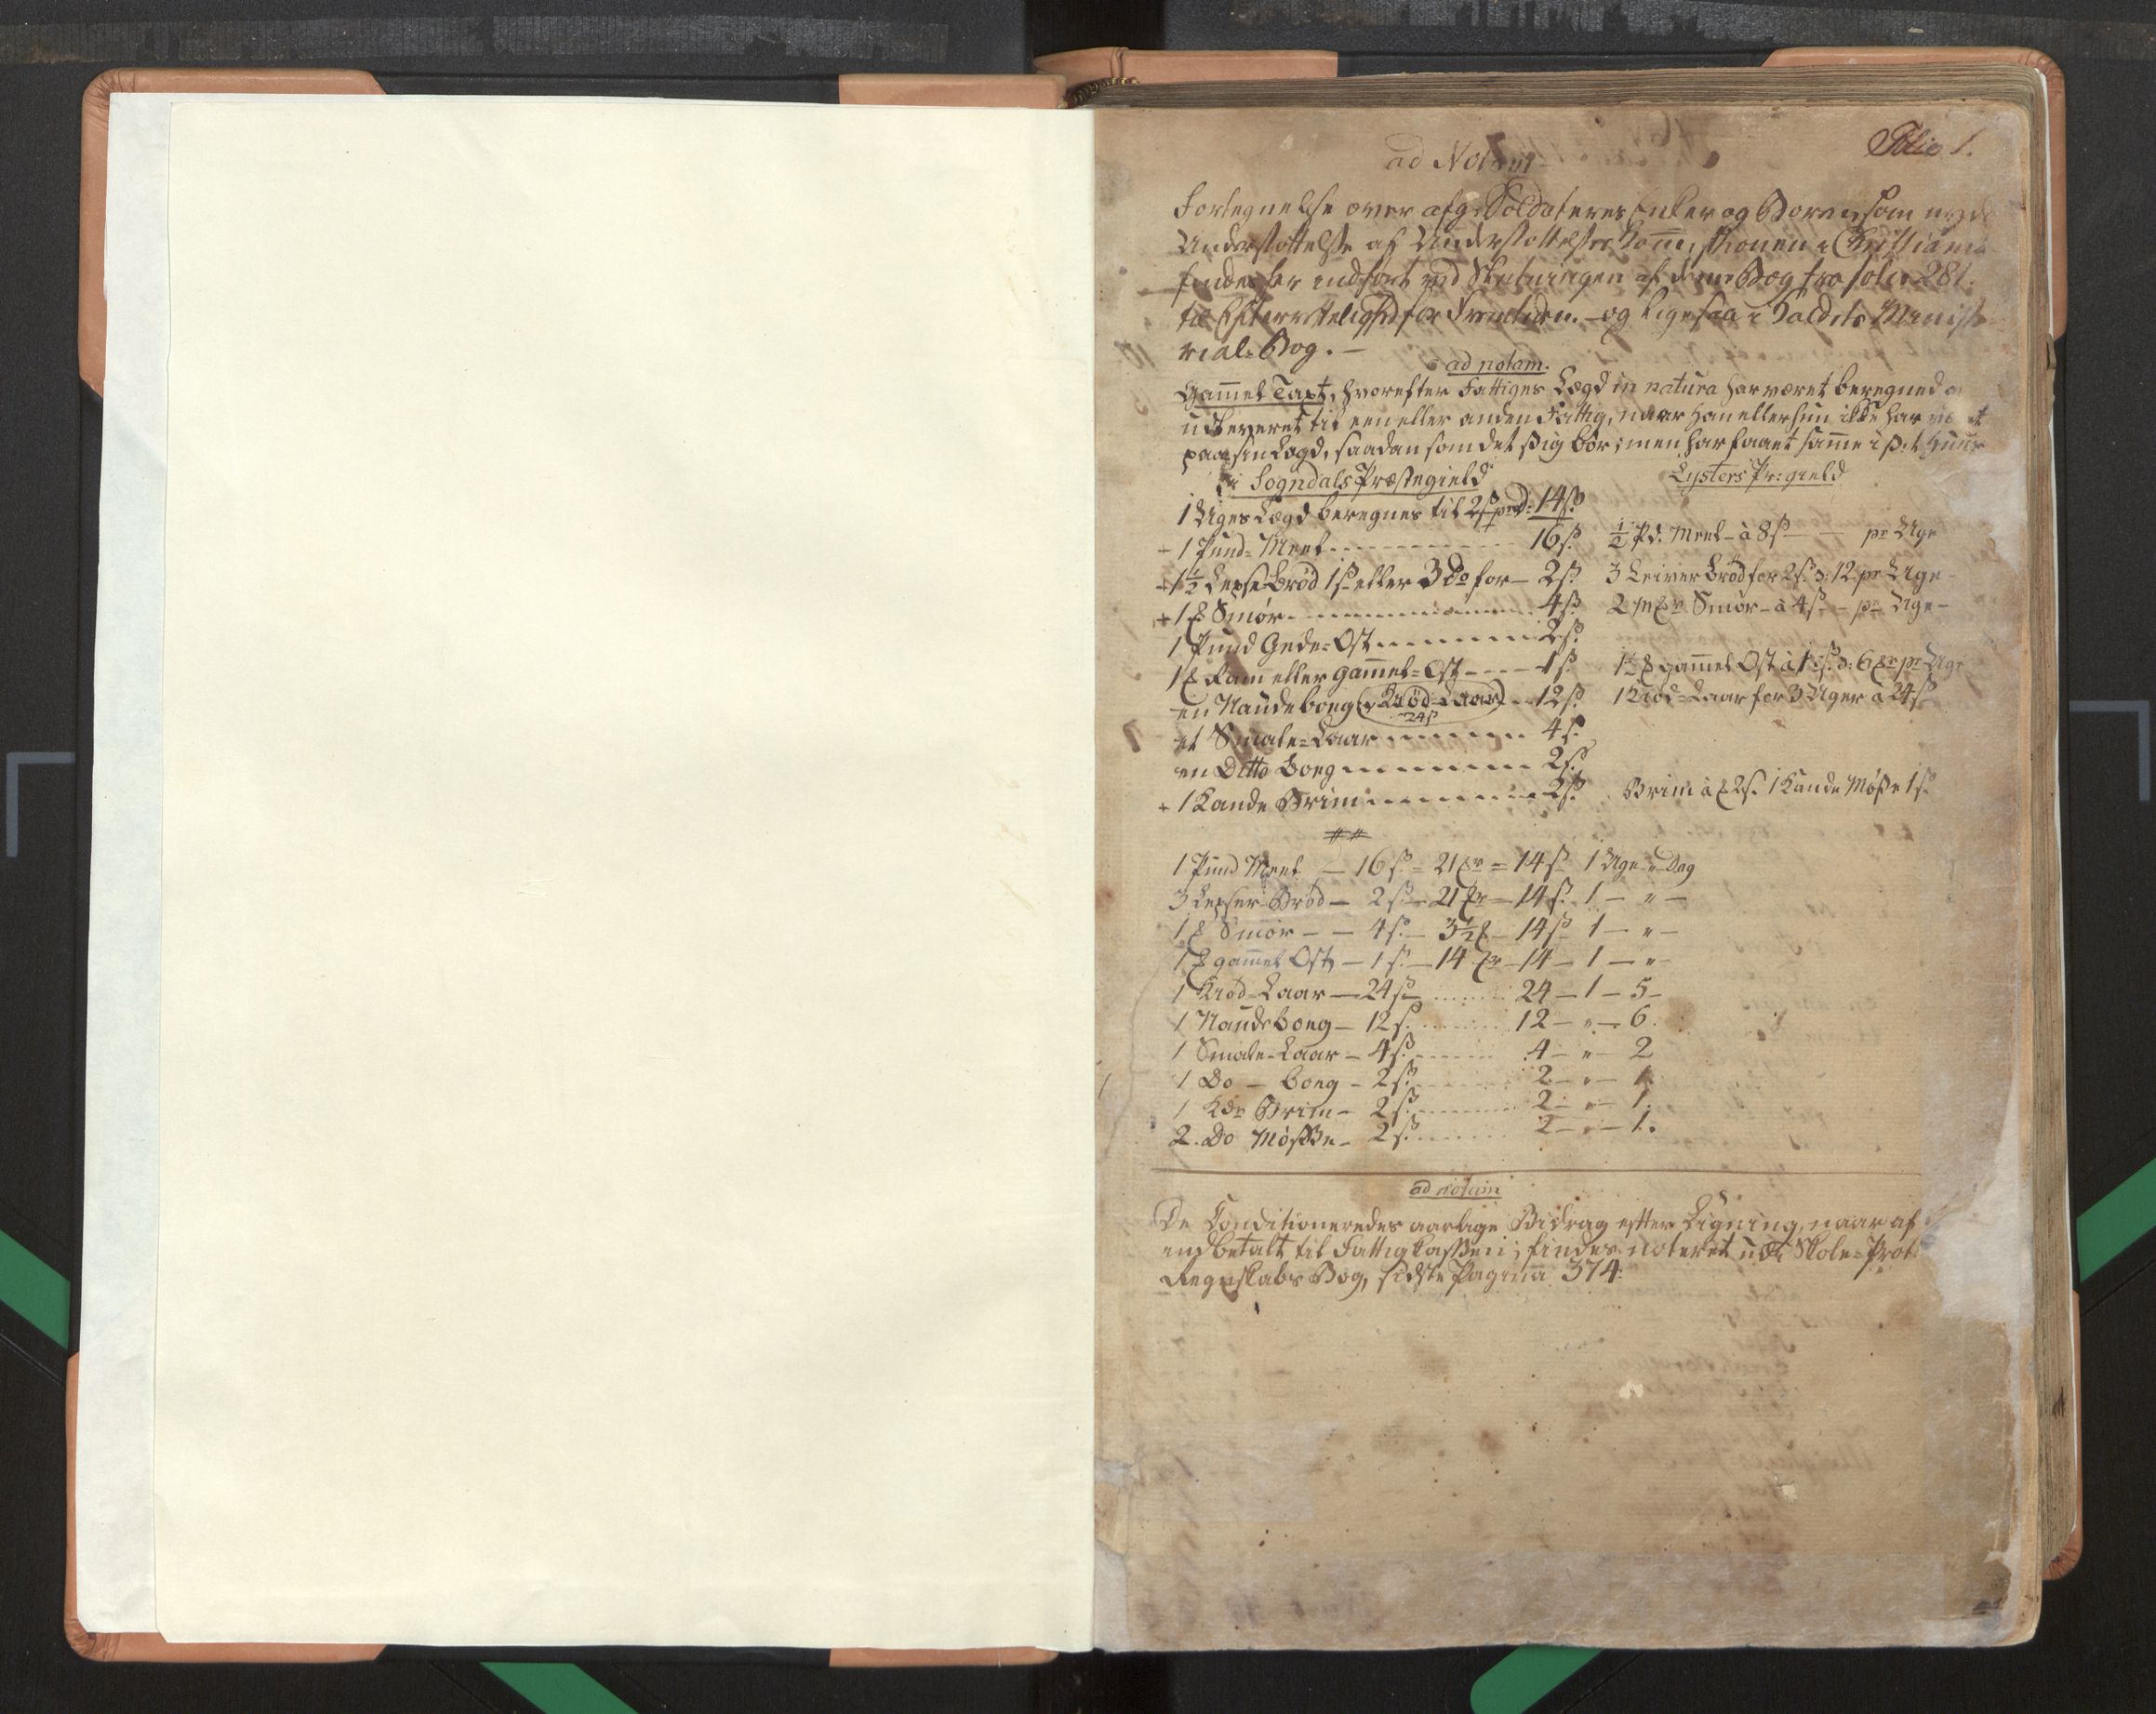 Folio 1.
ad Notam
Fortegnelse over afg: Soldaters Enker og Børn, som nyde
Understøttelse af Understøttelses Commissionen i Christiania
findes her indført ved Slutningen af denne Bog fra folio 281.
til Efterrettelighed for Fremtiden. - og ligesaa i Kaldets Ministe
rial-Bog. -
ad notam.
Gam̅el Taxt, hvorefter Fattiges Lægd in natura har været beregned
udleveret til een eller anden Fattig, naar Han eller hun ikke har
paa sin Lægd, saadan som det sig bør; men har faaet sam̅e i sit Huus
i Sogndals Præstegield
Lysters Pr: gield
1 Uges Lægd beregnes til 2 ß pr D: 14 ß.
+ 1 Pund Meel - - - 16 ß.
½ Pd. Meel - à 8 ß - pr Uge
+ 1½ Lepse-Brød 1 ß eller 3 Do for - 2 ß.
3 Leiver Brød for 2 ß. ɔ: 12 pr Uge -
+ 1 ℔ Smør - - - 4 ß
2 Mkr Smør - à 4 ß - pr Uge -
1 Pund Gede-Ost - - - 2 ß.
1 ℔ Ram eller gam̅el-Ost - - - 1 ß.
gam̅el Ost à 1 ß. ɔ: 6 ℔r pr Uge
en Naudeboug (1 Kiød-Laar 24 ß) - - 12 ß.
1 Kiød-Laar for 3 Uger à 24 ß
et Smale-Laar - - - 4 ß.
en Ditto Boug - - - 2 ß.
+ 1 Kande Prim - - - 2 ß.
Prim à ℔ 2 ß. 1 Kande Møsse 1 ß.
1 Pund Meel - 16 ß. = 21 ℔r = 14 ß 1 Uge " Dag
3 Lepser Brød - 2 ß - 21 ℔r - 14 ß. 1 - " -
1 ℔ Smør - - 4 ß. - 3½ ℔ - 14 ß 1 - " -
1 ℔ gam̅el Ost - 1 ß. - 14 ℔r - 14 - 1 - " -
1 Kiød-Laar - 24 ß - - - 24 - 1 - 5 -
1 Naudeboug - 12 ß. - - - 12 - " - 6.
1 Smale-Laar - 4 ß. - - - 4 - " - 2
1 Do - Boug - 2 ß. - - - 2 - " - 1.
1 Kde Prim - 2 ß. - - - 2 - " - 1.
2. Do Møsse - 2 ß. - - - 2 - " - 1.
ad notam
De Conditioneredes aarlige Bidrag efter Ligning, naar af
indbetalt til Fattigkassen, findes noteret udi Skole-Prot:
Regnskabs Bog, sidste Pagina 374.